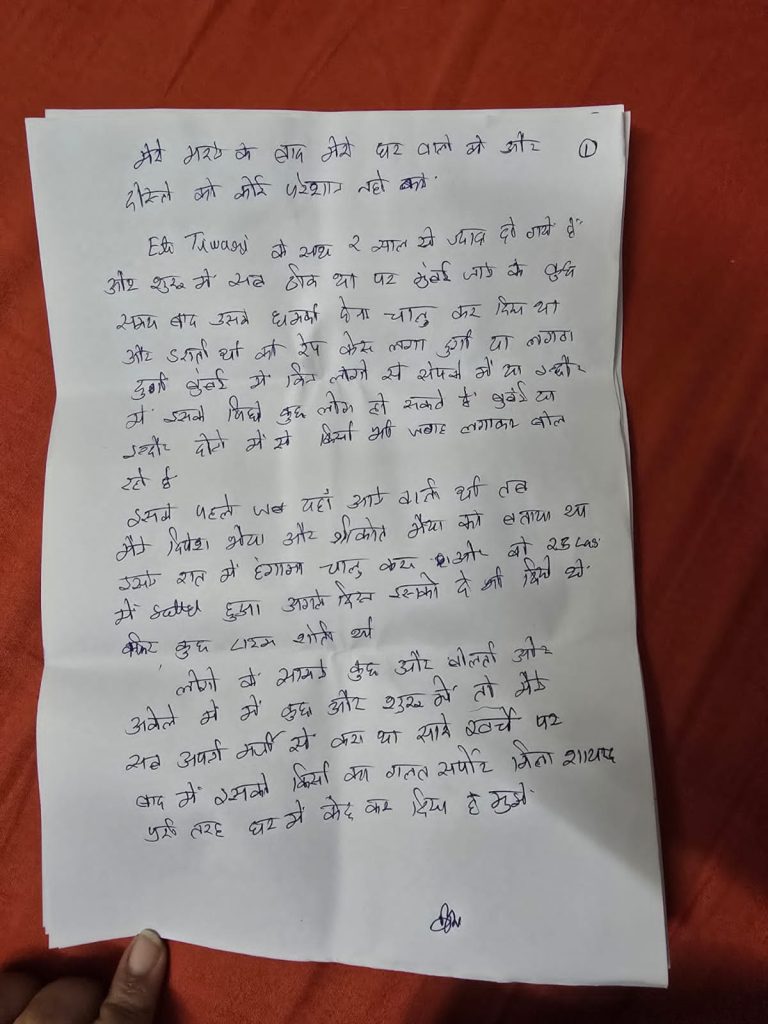 मेरे मरने के बाद मेरे घर वाले को और ①
दोस्तो को कोई परेशान नहीं करे
Tiwari के साथ 2 साल से ज्यादा हो गये है
और शुरू में सब ठीक था पर मुंबई जाने के कुछ
समय बाद उसने धमकी देना चालु कर दिया था
और डराती थी की रेप केस लगा दुंगी या लगवा
दुंगी मुंबई में किन लोगो से संपर्क में या इन्दौर
में इसके पिछे कुछ लोग हो सकते है मुंबई या
इन्दौर दोनो में से किसी भी जगह लगाकर बोल
रहे है
इसके पहले जब यहाँ आने वाली थी तब
मैने भैया और भैया को बताया था
इसने रात में हंगामा चालु करा और वो 25 Las
में हुआ अगले दिन इसको दे भी दिये थे
फिर कुछ टाइम शांती थी
लोगो के सामने कुछ और बोलती और
अकेले में में कुछ और शुरू में तो मैने
सब अपनी मर्जी से करा था सारे खर्चे पर
बाद में इसको किसी का गलत सपोर्ट मिला शायद
पुरी तरह घर में केद कर दिया है मुझे